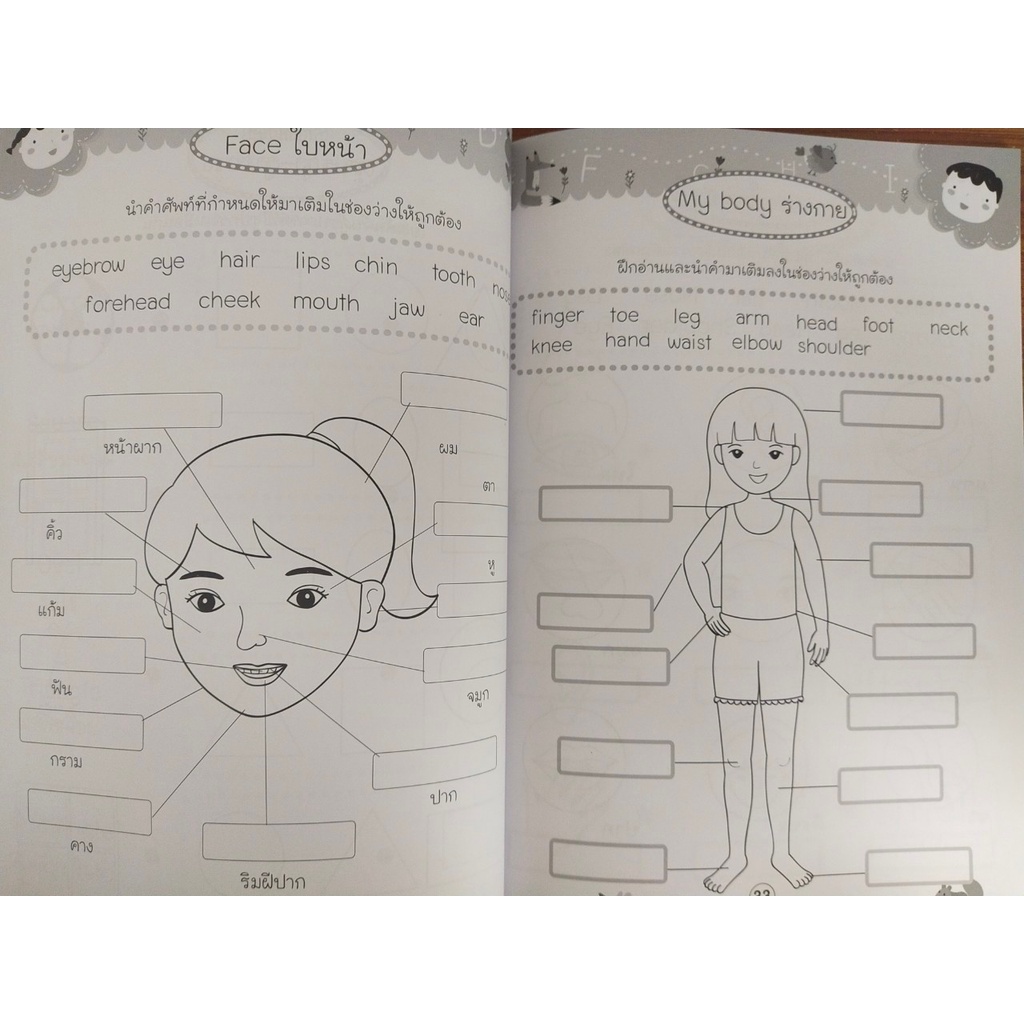 Face ใบหน้า
นำคำศัพท์ที่กำหนดให้มาเติมในช่องว่างให้ถูกต้อง
eyebrow eye hair lips chin tooth nose
forehead cheek mouth jaw ear
หน้าผาก
ผม
คิ้ว
ตา
แก้ม
หู
ฟัน
จมูก
กราม
ปาก
คาง
ริมฝีปาก
F G H I
My body ร่างกาย
ฝึกอ่านและนำคำมาเติมลงในช่องว่างให้ถูกต้อง
finger toe leg arm head foot neck
knee hand waist elbow shoulder
33